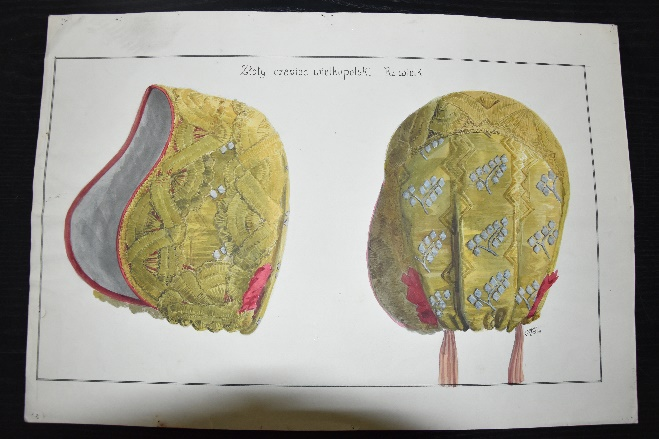 Złoty czepiec wielkopolski